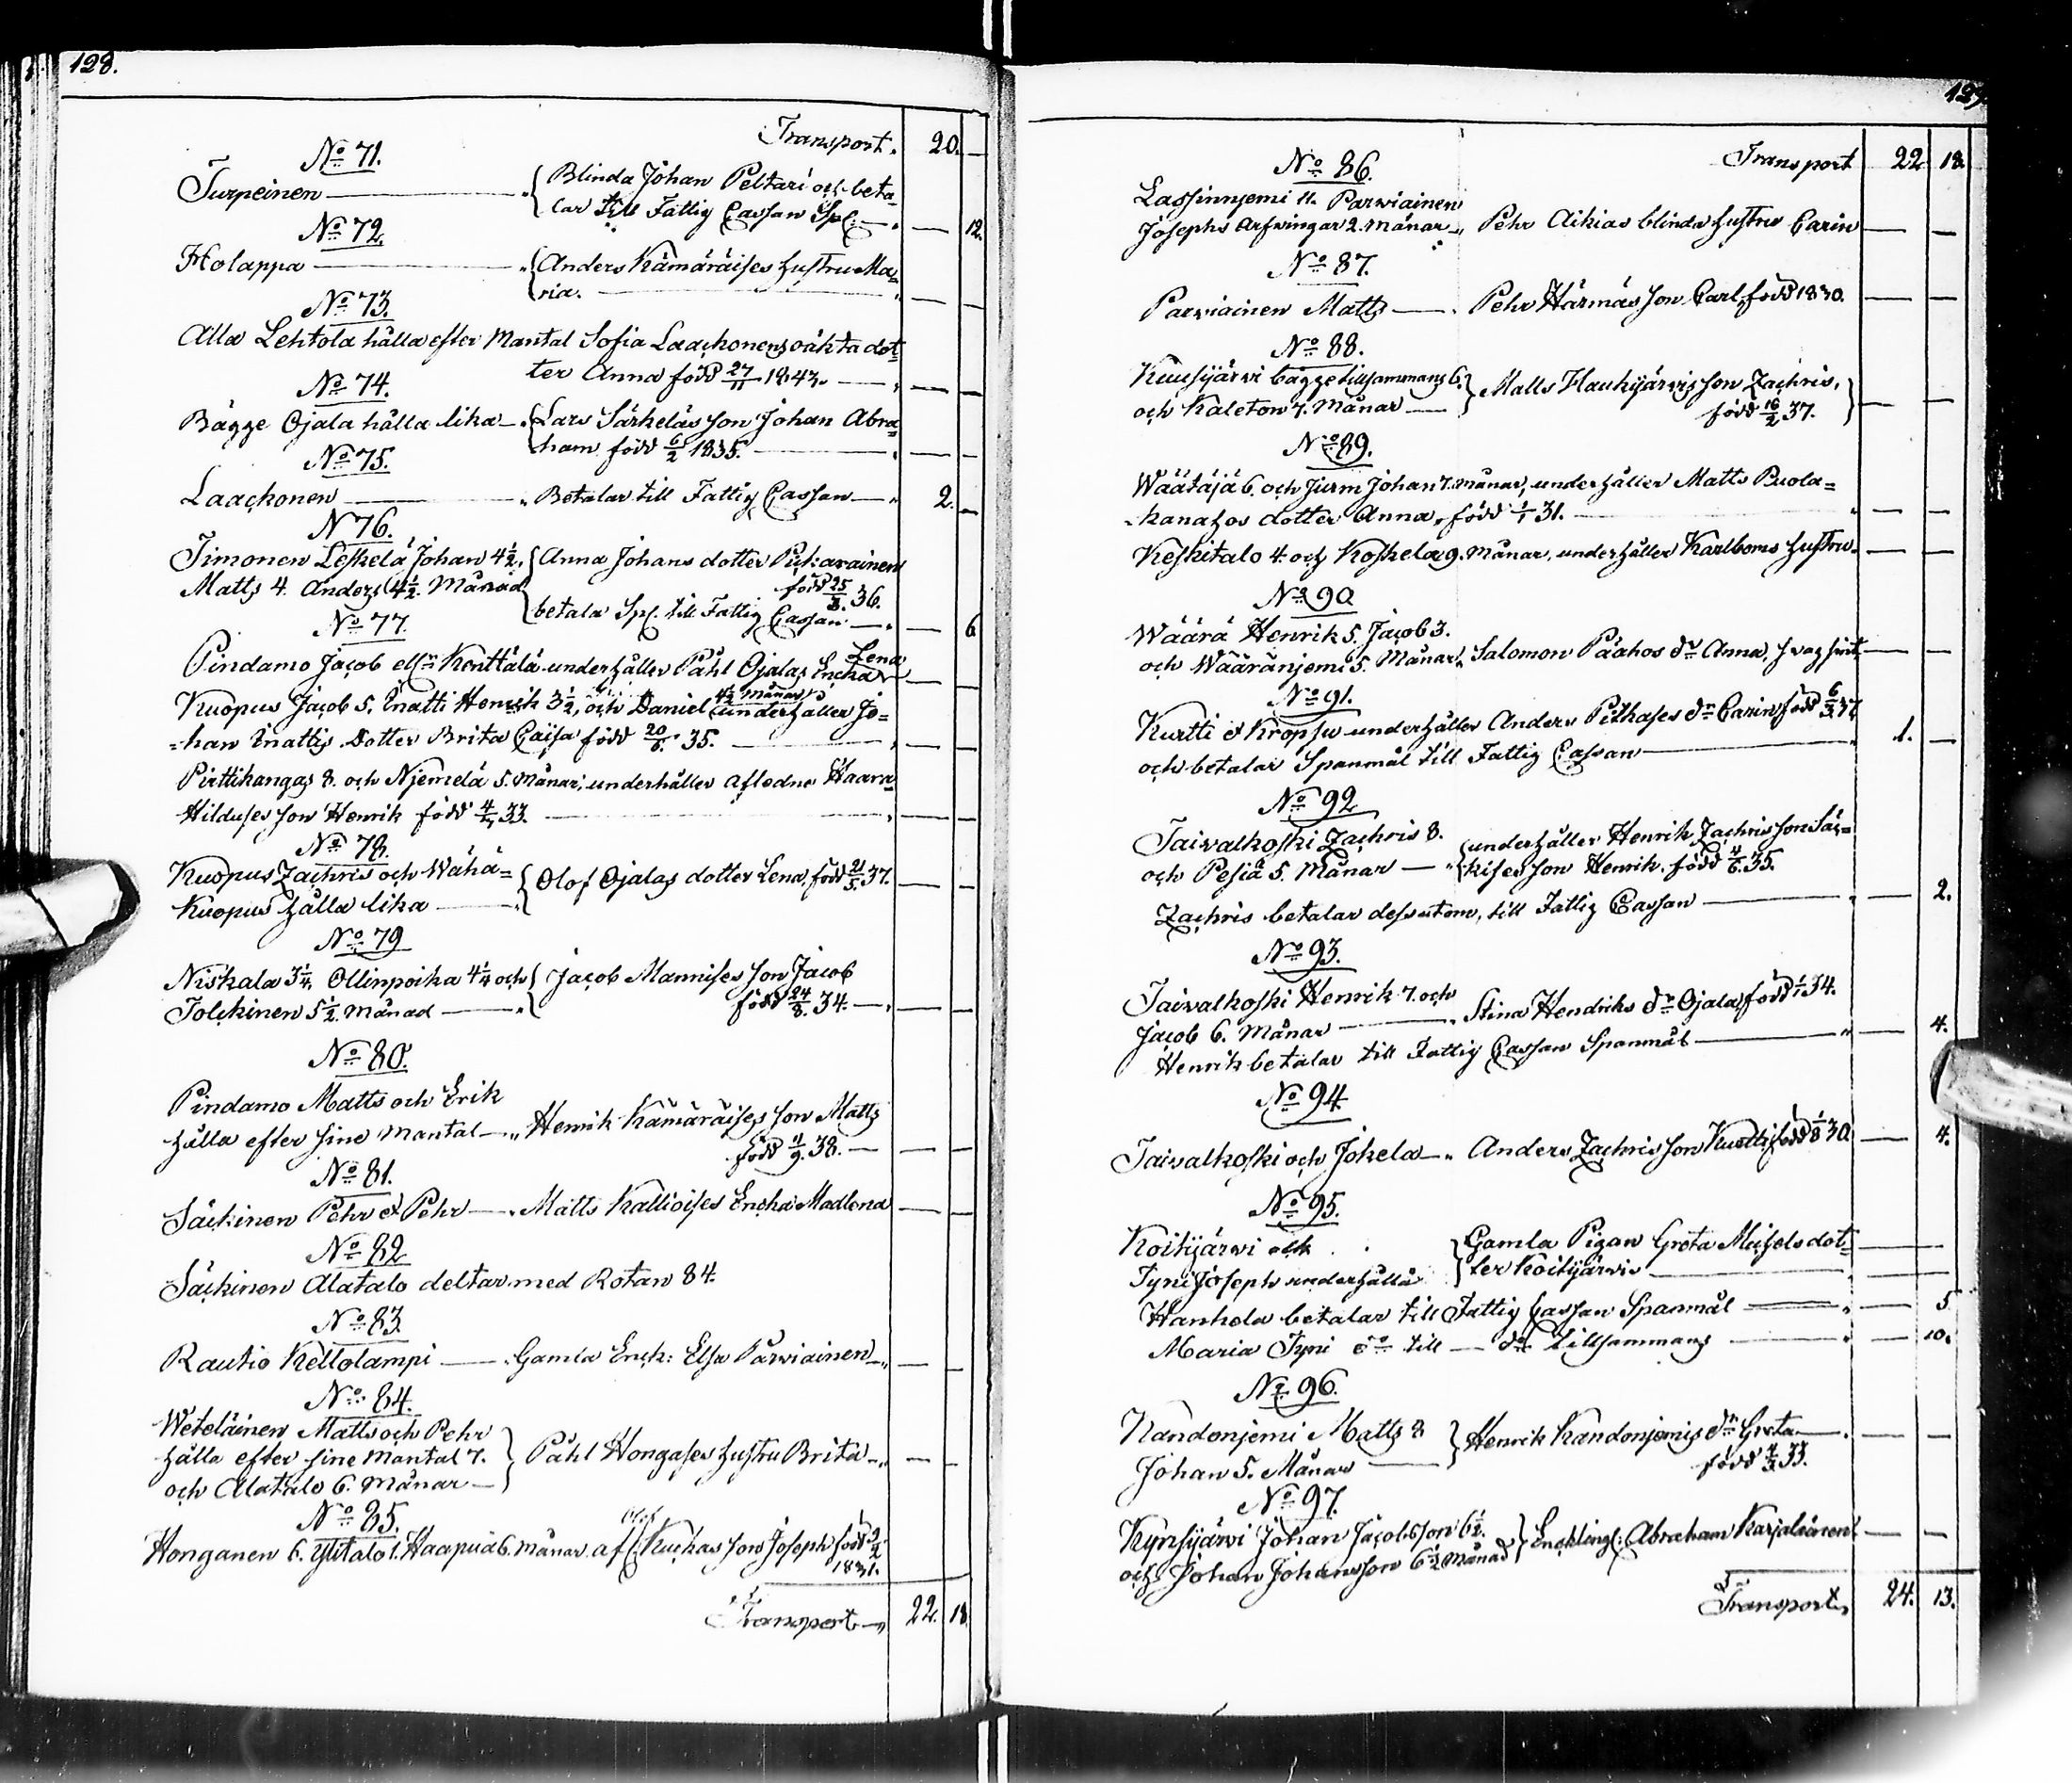 128.
Transport. 20. —
No 71.
Turpeinen — { Blinda Johan Peltari och beta-
lar till Fattig Cassan Spl: — 12.
No 72.
Holappa — { Anders Kämäräises hustru Ma-
ria. —
No 73.
Alla Lehtola hålla efter Mantal Sofia Laackonens oäkta dot-
ter Anna född 27/11 1843. —
No 74.
Bägge Ojala hålla lika — { Lars Särkeläs son Johan Abra-
ham född 6/2 1835. —
No 75.
Laackonen — Betalar till Fattig Cassan — 2. —
N 76.
Timonen Leskelä Johan 4½, { Anna Johans dotter Pickarainen
Matts 4. Anders 4½. Månad född 25/3. 36.
betala Spl. till Fattig Cassan — 6
No 77.
Pindamo Jacob ell:r Konttälä underhåller Påhl Ojalas Encka Lena —
Kuopus Jacob 5. Enatti Henrik 3½, och Daniel 4½ månar underhåller Jo-
han Enattis Dotter Brita Caisa född 20/6. 35. —
Pirttikangas 8. och Njemelä 5. Månar, underhåller afledne Haara
Hilduses son Henrik född 4/4 33. —
No 78.
Kuopus Zachris och Wähä- { Olof Ojalas dotter Lena, född 21/5. 37.
Kuopus hålla lika —
No 79
Niskala 3¼, Ollinpoika 4¼ och { Jacob Mannises son Jacob
Tolckinen 5½. Månad — född 24/8. 34. —
No 80.
Pindamo Matts och Erik
hålla efter sine Mantal — Henrik Kämäräises son Matts
född 11/9. 38. —
No 81.
Säckinen Pehr & Pehr — Matts Kallioises Encka Madlena
No 82
Säckinen Alatalo deltar med Rotan 84.
No 83.
Rautio Kellolampi — Gamla Enck: Elsa Parwiainen —
No 84.
Weteläinen Matts och Pehr
hålla efter sine Mantal 7. } Påhl Hongases hustru Brita —
och Alatalo 6. Månar —
No 85.
Honganen 6. Ylitalo 1. Haapua 6. månar. af Olof Kuckas son Joseph född 2/2
1831.
Transport — 22. 18.
129.
Transport 22. 18.
No 86.
Lassinnjemi 11. Parwiainen
Josephs Arfwingar 2. Månar — Pehr Aikias blinda hustru Carin —
No 87.
Parwiainen Matts — Pehr Härmäs son Carl, född 1830. —
No 88.
Kuusijärvi bägge tillsammans 6. } Matts Haukijärvis son Zachris,
och Kaleton 7. Månar — född 16/2 37.
No 89.
Wäätäjä 6. och Jurm Johan 7. månar, underhåller Matts Puola-
kanahos dotter Anna, född 1/1 31. —
Keskitalo 4. och Koskela 9. Månar, underhåller Karlboms hustru —
No 90
Wäärä Henrik 5. Jacob 3.
och Wääränjemi 5. Månar, Salomon Päähos dr Anna, svagsint —
No 91.
Kurtti & Kropsu underhåller Anders Pätkases dr Carin född 6/3. 37
och betalar Spanmål till Fattig Cassan — 1. —
No 92
Taivalkoski Zachris 8. { underhåller Henrik Zachrisson Sär-
och Pesiä 5. Månar — kises son Henrik. född 4/6. 35.
Zachris betalar dessutom, till Fattig Cassan — 2.
No 93.
Taivalkoski Henrik 7. och
Jacob 6. Månar — Stina Hendriks dr Ojala, född 1/1 34.
Henrik betalar till Fattig Cassan Spanmål — 4.
No 94.
Taivalkoski och Jokela — Anders Zachrisson Kurtti, född 1/8 30. — 4.
No 95.
Koitijärwi och } Gamla Pigan Greta Michelsdot-
Tyni Joseph underhålla ter Koitijärwi —
Hanhela betalar till Fattig Cassan Spanmål — 5
Maria Tyni do till — do tillsammans — 10.
No 96.
Kandonjemi Matts 8 } Henrik Kandonjemis dr Greta —
Johan 5. Månar — född 4/3. 33.
No 97.
Kynsijärwi Johan Jacobsson 6½. } Encklingl: Abraham Karjalainen —
och Johan Johansson 6½ Månad
Transport 24. 13.